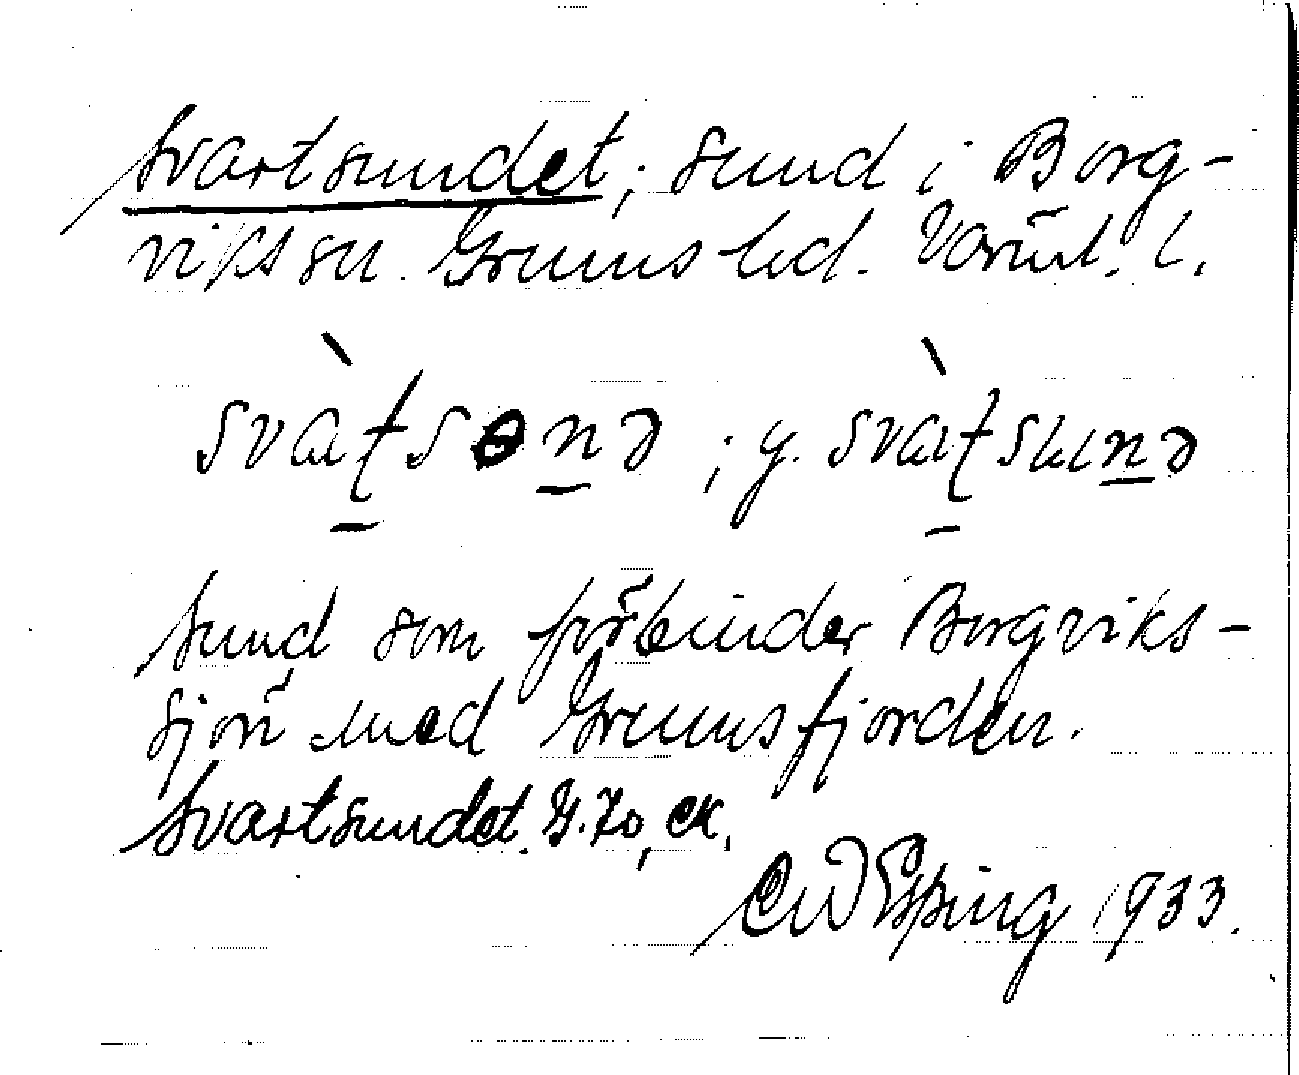 Svartsundet; sund i Borg-
viks sn. Grums hd. Värml. l.
svàʈsɵnə ; y. svàʈsunə
Sund som förbinder Borgviks-
sjön med Grumsfjorden.
Svartsundet. G.70, ek.
CWEsping 1933.